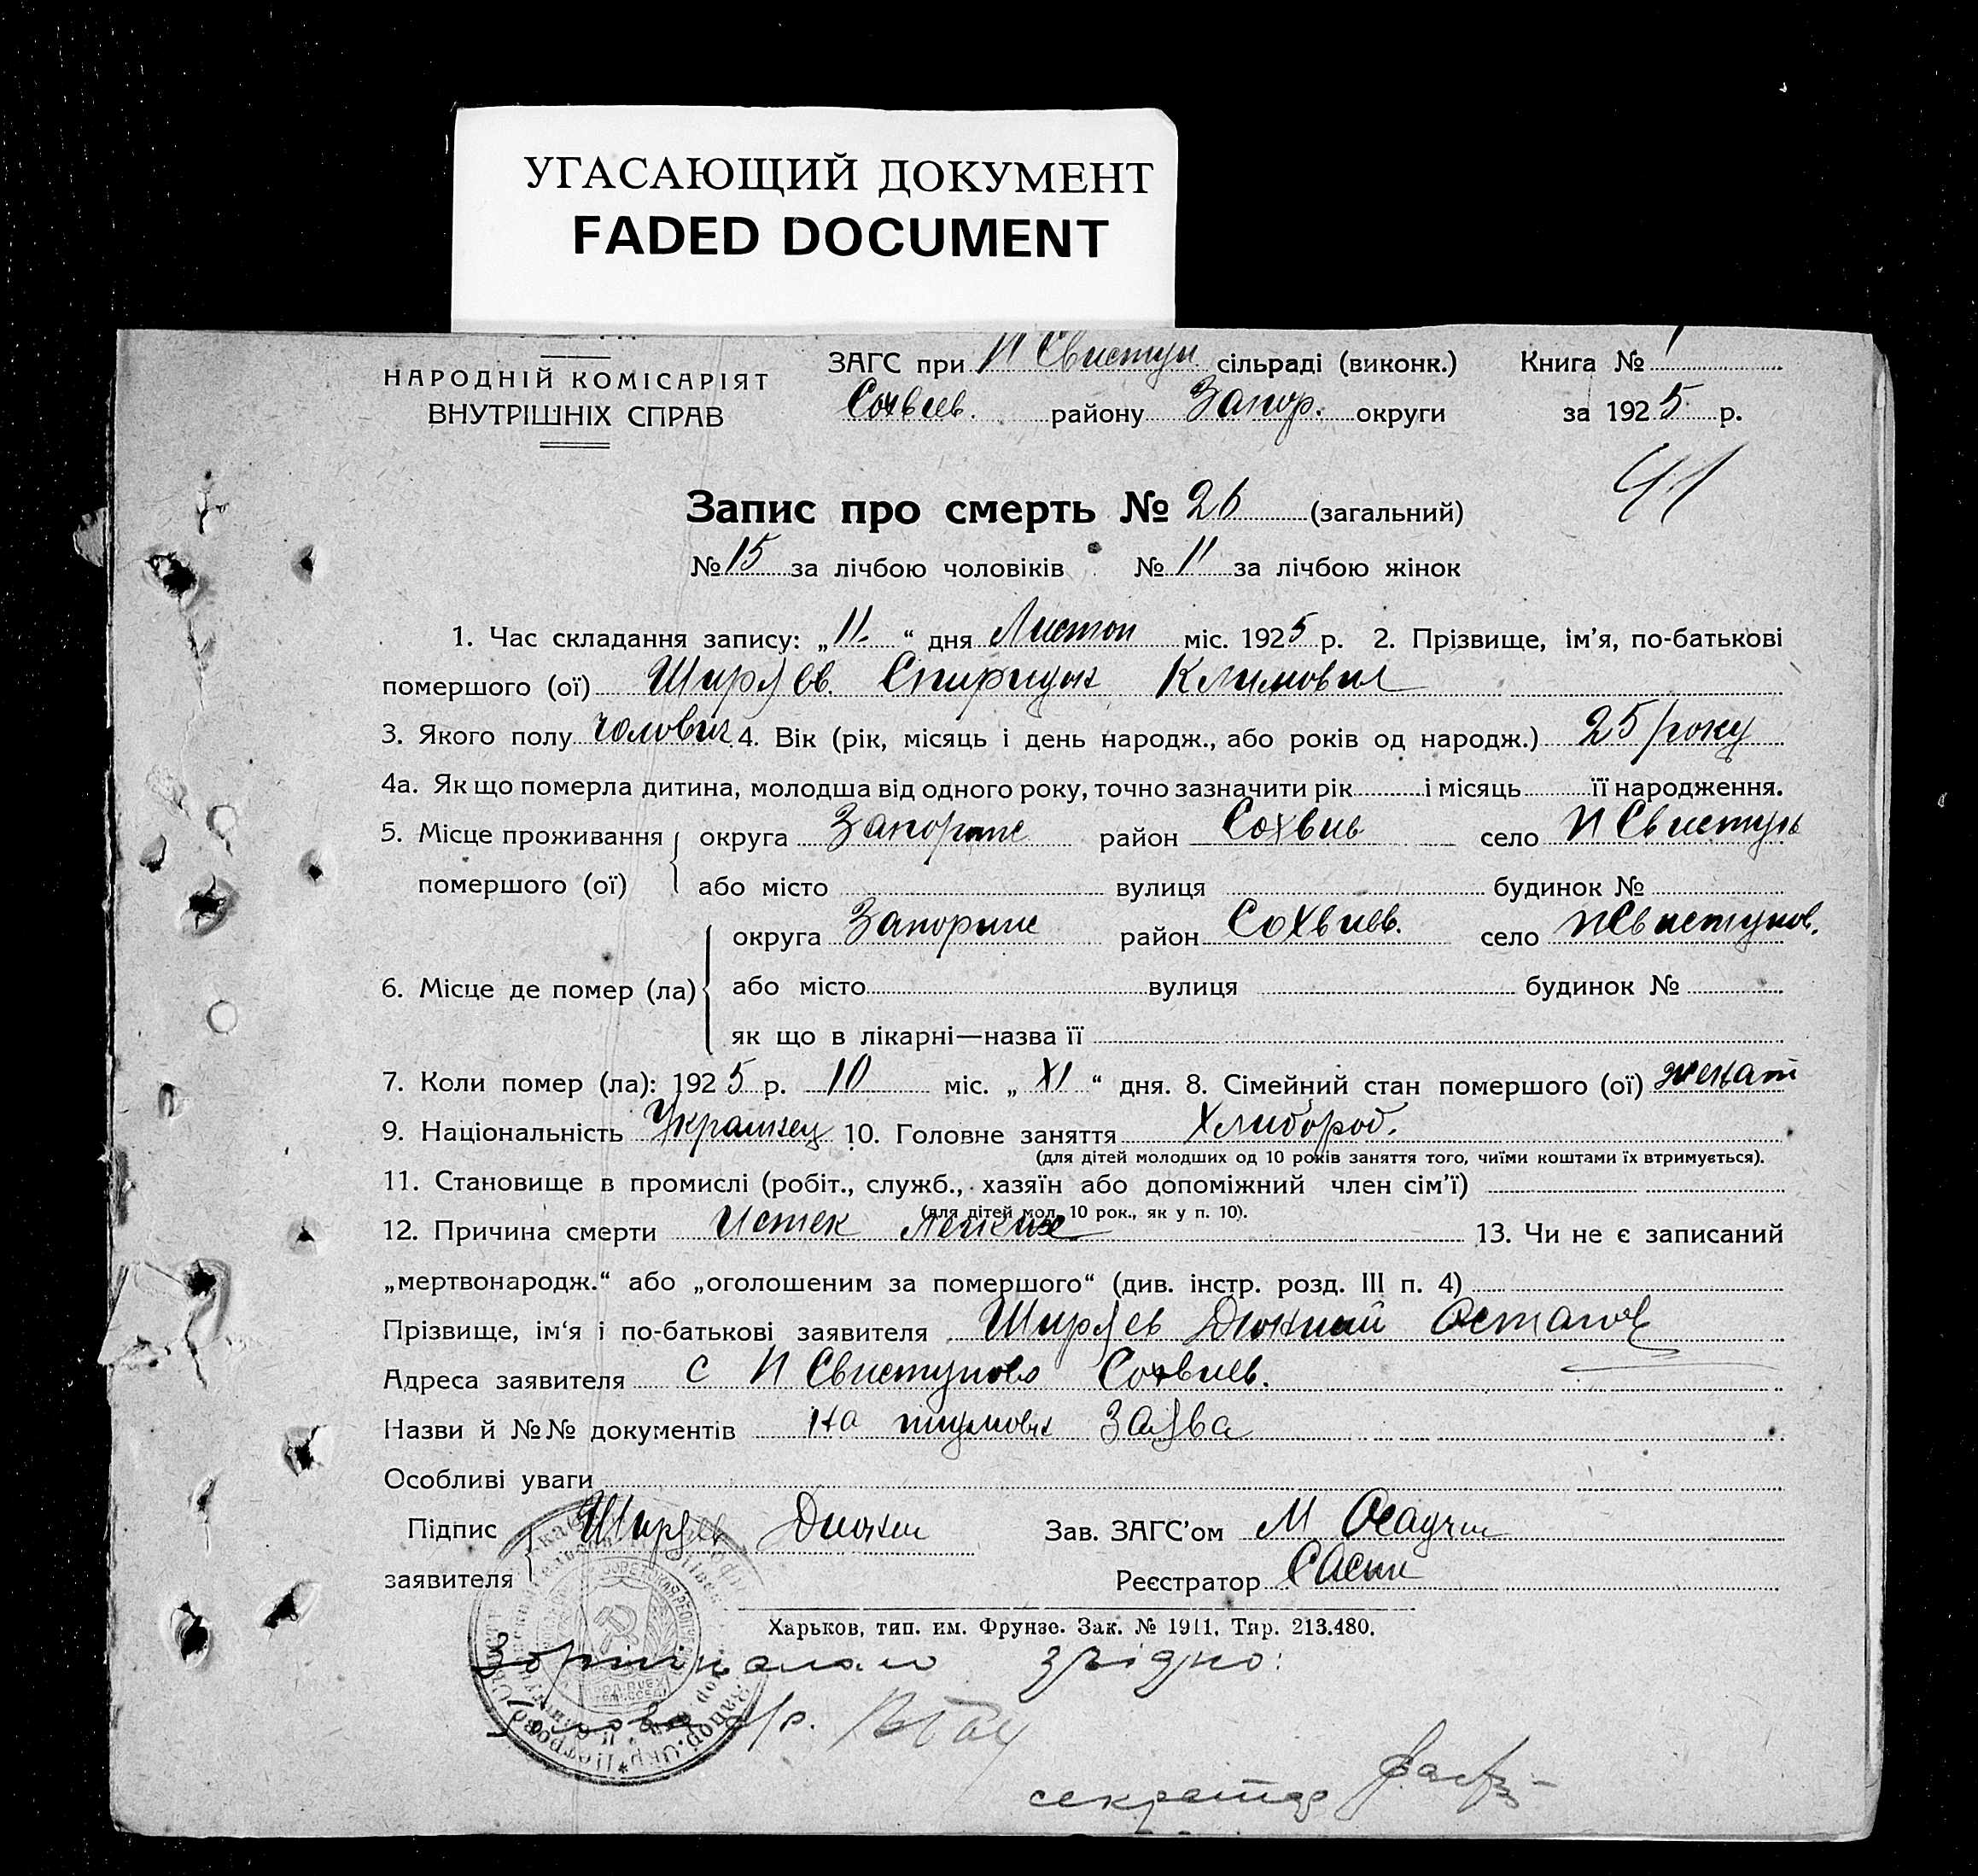 УГАСАЮЩИЙ ДОКУМЕНТ
FADED DOCUMENT
НАРОДНІЙ КОМІСАРІЯТ
ВНУТРІШНІХ СПРАВ
ЗАГС при П Свистун сільраді (виконк.) Книга № 1
району Запор. округи за 1925 р.
41
Запис про смерть № 26 (загальний)
№ 15 за лічбою чоловіків № 11 за лічбою жінок
1. Час складання запису: „ 11. “ дня Листоп міс. 1925 р. 2. Прізвище, ім'я, по-батькові
помершого (ої) Ширяєв. Спиридон Климович
3. Якого полу чолович. 4. Вік (рік, місяць і день народж., або років од народж.) 25 року
4а. Як що померла дитина, молодша від одного року, точно зазначити рік і місяць її народження.
5. Місце проживання помершого (ої) округа Запориже район Сохвив село П Свистунь
або місто вулиця будинок №
6. Місце де помер (ла) округа Запориже район Сохвиев. село п Свистунов.
або місто вулиця будинок №
як що в лікарні—назва її
7. Коли помер (ла): 1925 р. 10 міс. „ XI “ дня. 8. Сімейний стан помершого (ої) женат
9. Національність Украинец 10. Головне заняття Хлибороб.
(для дітей молодших од 10 років заняття того, чиїми коштами їх втримується).
11. Становище в промислі (робіт., служб., хазяїн або допоміжний член сім'ї)
(для дітей мол. 10 рок., як у п. 10).
12. Причина смерти 13. Чи не є записаний
„мертвонародж.“ або „оголошеним за помершого“ (див. інстр. розд. III п. 4)
Прізвище, ім'я і по-батькові заявителя Ширяев Остапов
Адреса заявителя с П Свистунова Сохвиев.
Назви й №№ документів заява
Особливі уваги
Підпис заявителя Ширяев
Зав. ЗАГС'ом М Осадчи
Реєстратор
Харьков, тип. им. Фрунзе. Зак. № 1911. Тир. 213.480.
З оригіналом згідно:
Голова с/р.
секретар